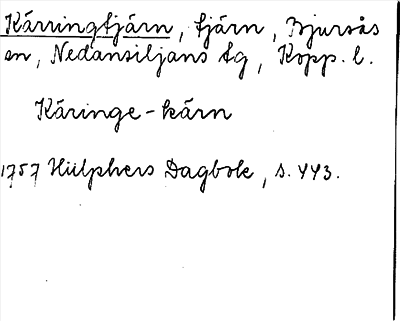 Kärringtjärn, tjärn, Bjursås
sn, Nedansiljans tg, Kopp. l.
Käringe-kärn
1757 Hülphers Dagbok, s. 443.